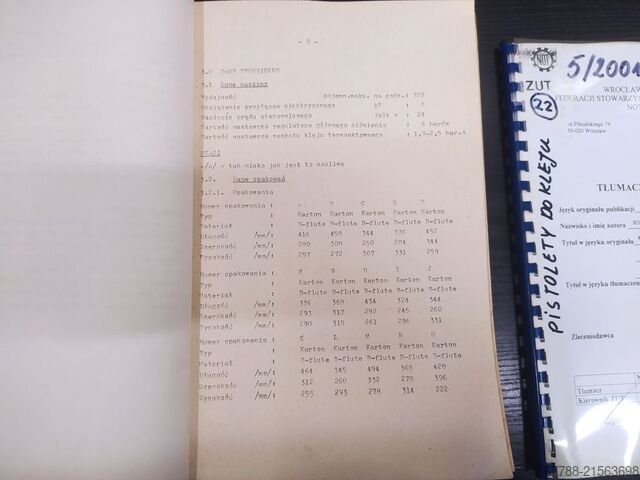 - 5 -
1.0 DANE TECHNICZNE
1.1 Dane maszyny
Wydajność pojemn.maks. na godz.: 370
Obciążenie przyłącza elektrycznego kW : 8
Napięcie prądu sterowniczego Volt = : 24
Wartość nastawcza regulatora głównego ciśnienia : 6 barów
Wartość nastawcza zespołu kleju termoaktywnego : 1,7-2,5 bar.
UWAGI
= tak nisko jak jest to możliwe
1.2. Dane opakowań
1.2.1. Opakowania
Numer opakowania : A B C D E
Typ : Karton Karton Karton Karton Karton
Materiał : B-flute B-flute B-flute B-flute B-flute
Długość /mm/: 416 458 344 376 452
Szerokość /mm/: 280 308 260 284 344
Wysokość /mm/: 257 272 307 331 259
Numer opakowania : F G H I J
Typ : Karton Karton Karton Karton Karton
Materiał : B-flute B-flute B-flute B-flute B-flute
Długość /mm/: 336 368 434 324 344
Szerokość /mm/: 293 317 292 245 260
Wysokość /mm/: 290 315 261 296 331
Numer opakowania : K L M N O
Typ : Karton Karton Karton Karton Karton
Materiał : B-flute B-flute B-flute B-flute B-flute
Długość /mm/: 464 345 494 368 428
Szerokość /mm/: 312 260 332 278 396
Wysokość /mm/: 255 293 278 314 222
NOT
5/2001
ZUT
22
WROCŁAW
FEDERACJI STOWARZYS
NOT
ul.Piłsudskiego 74
50-020 Wrocław
PISTOLETY DO KLEJU
TŁUMAC
Język oryginału publikacji
Nazwisko i imię autora
Tytuł w języku oryginału
Tytuł w języku tłumaczen
Zleceniodawca
Tłumacz
Kierownik ZUT
788-21563698